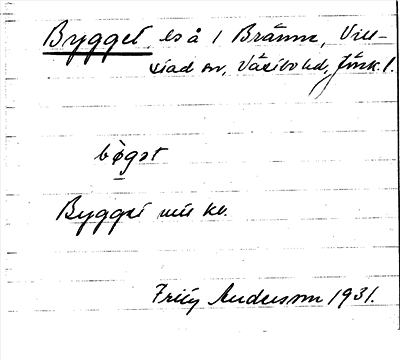 Bygget, ls å 1 Bränne, Vill-
stad sn, Västbo hd, Jönk. l.
bø̀gət
Bygget
Fritz Andersson 1931.